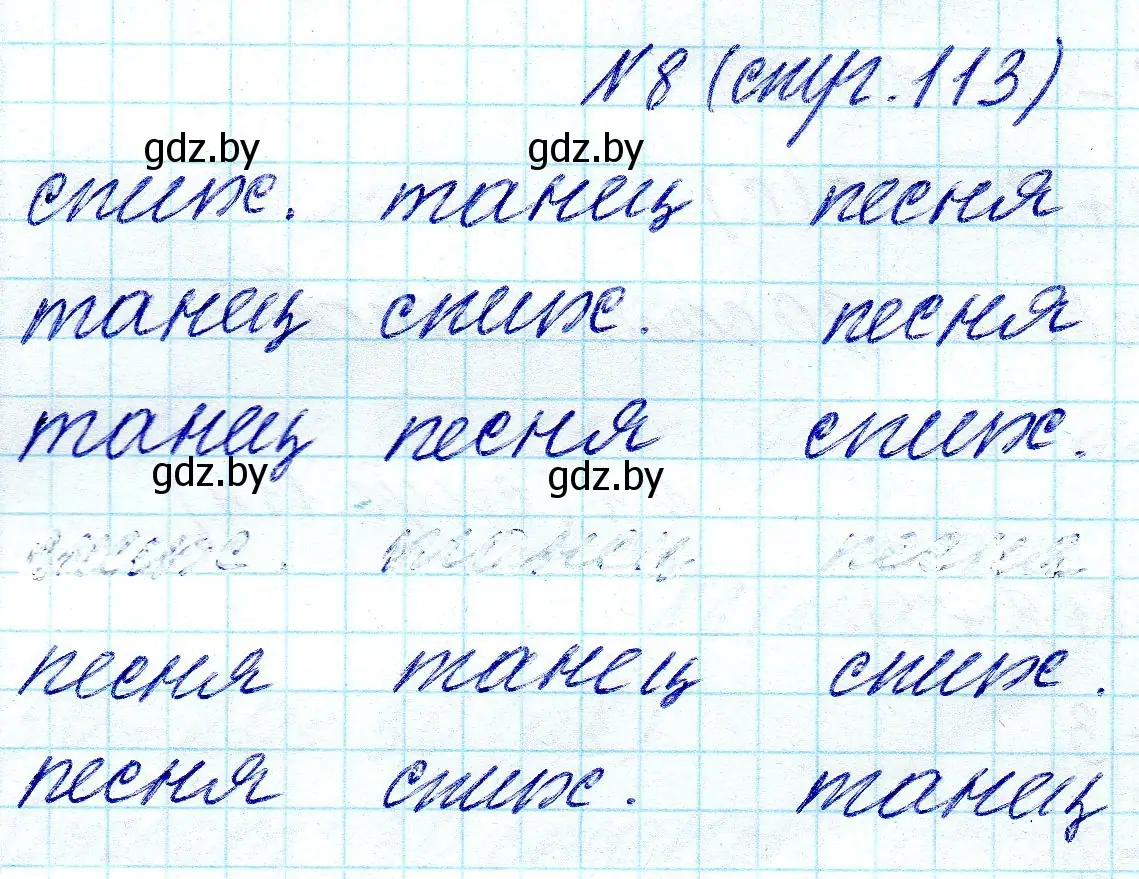 №8 (стр. 113)
gdz.by gdz.by
стих. танец песня
танец стих. песня
танец песня стих.
gdz.by gdz.by
стих. танец песня
песня танец стих.
песня стих. танец